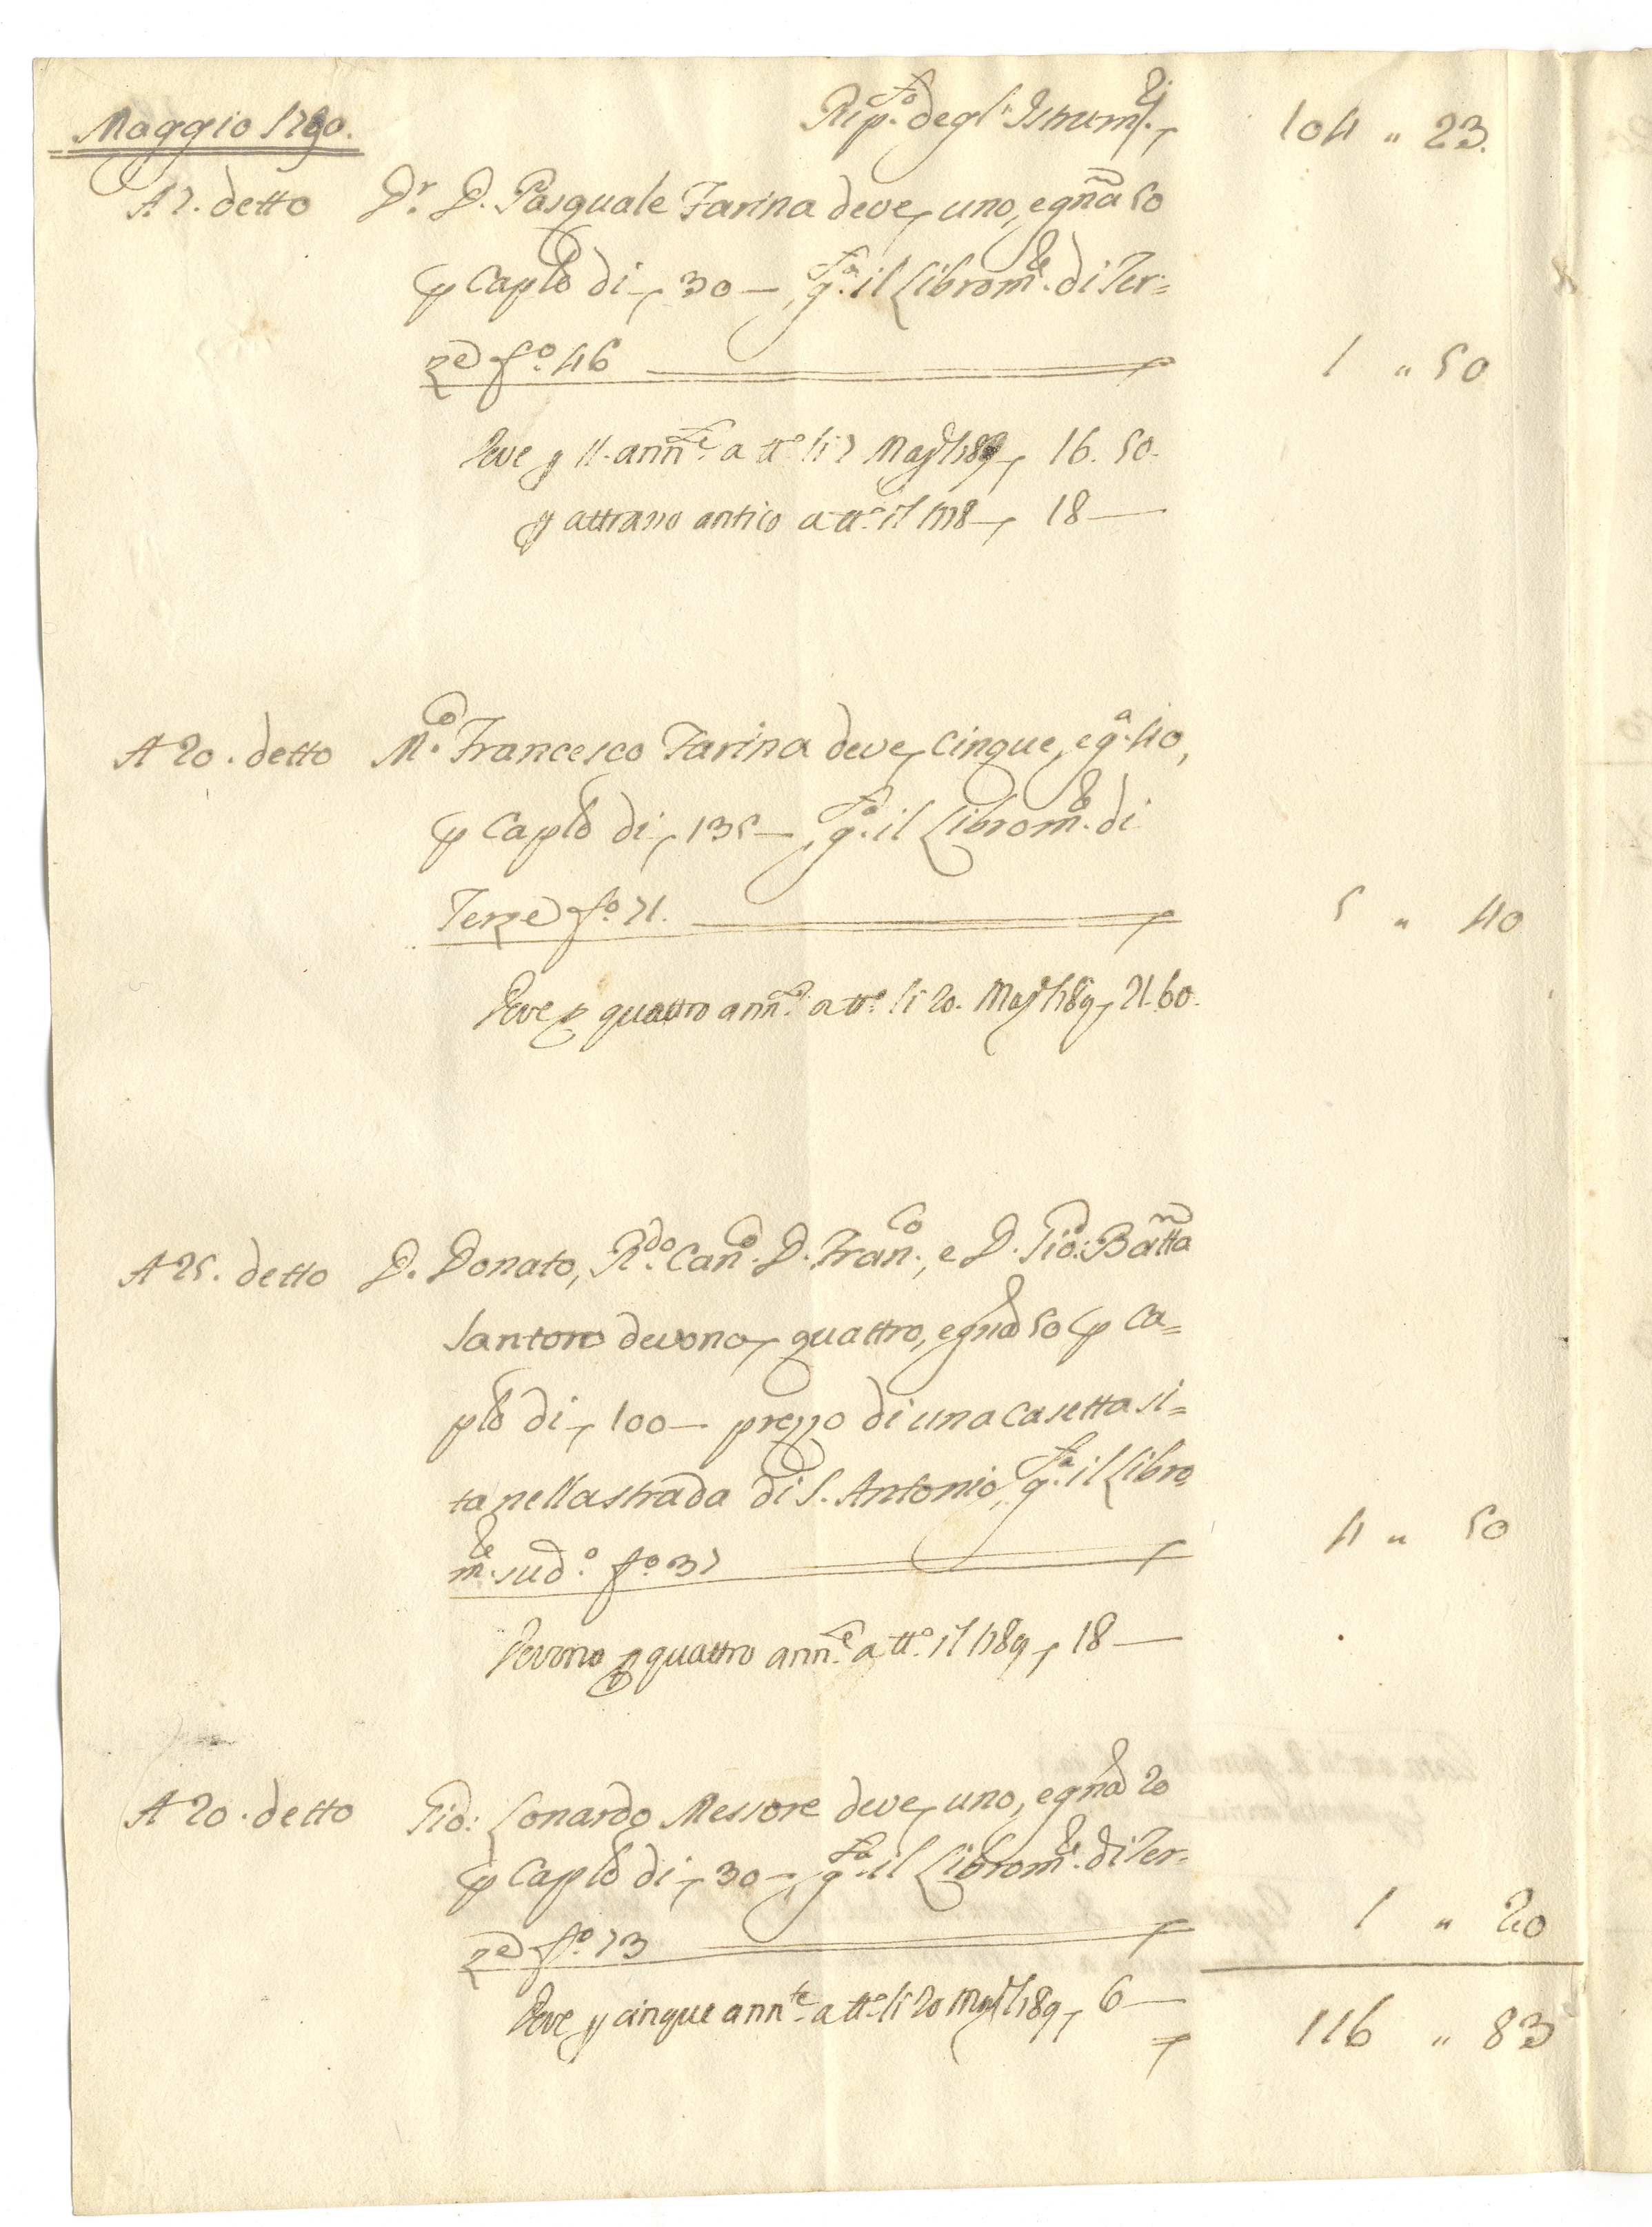 Maggio 1790. Rip.to degl'Istrum.ti 104 " 23.
A 7. detto D.r D. Pasquale Farina deve, uno, e gñã 50
p Caplo di, 30 — , q.sta il Libro m.re di Ter=
ze f.o 46 1 " 50
Deve p 11. ann.te a tt.o li 7 Mag.o 1789, 16. 50.
p attrasso antico a tt.o il 1778, 18 —
A 20. detto M.co Francesco Farina deve, cinque, e g.a 40,
p Caplo di, 135 — , q.sta il Libro m.re di
Terze f.o 71. 5 " 40
Deve p quattro ann.te a tt.o li 20. Mag.o 1789, 21. 60.
A 25. detto D. Donato, R.do Can.co D. Fran.co, e D. Gio: Batta
Santoro devono, quattro, e gña 50 p Ca=
plo di, 100 — prezzo di una casetta si=
ta nella strada di S. Antonio, q.sta il Libro
m.re sud.o f.o 37 4 " 50
Devono p quattro ann.te a tt.o il 1789, 18 —
A 20. detto Gio: Lonardo Messore deve, uno, e gña 20
p Caplo di, 30 — , q.sta il Libro m.re di Ter=
ze f.o 73 1 " 20
Deve p cinque ann.te a tt.o li 20 Mag.o 1789, 6 —
116 " 83